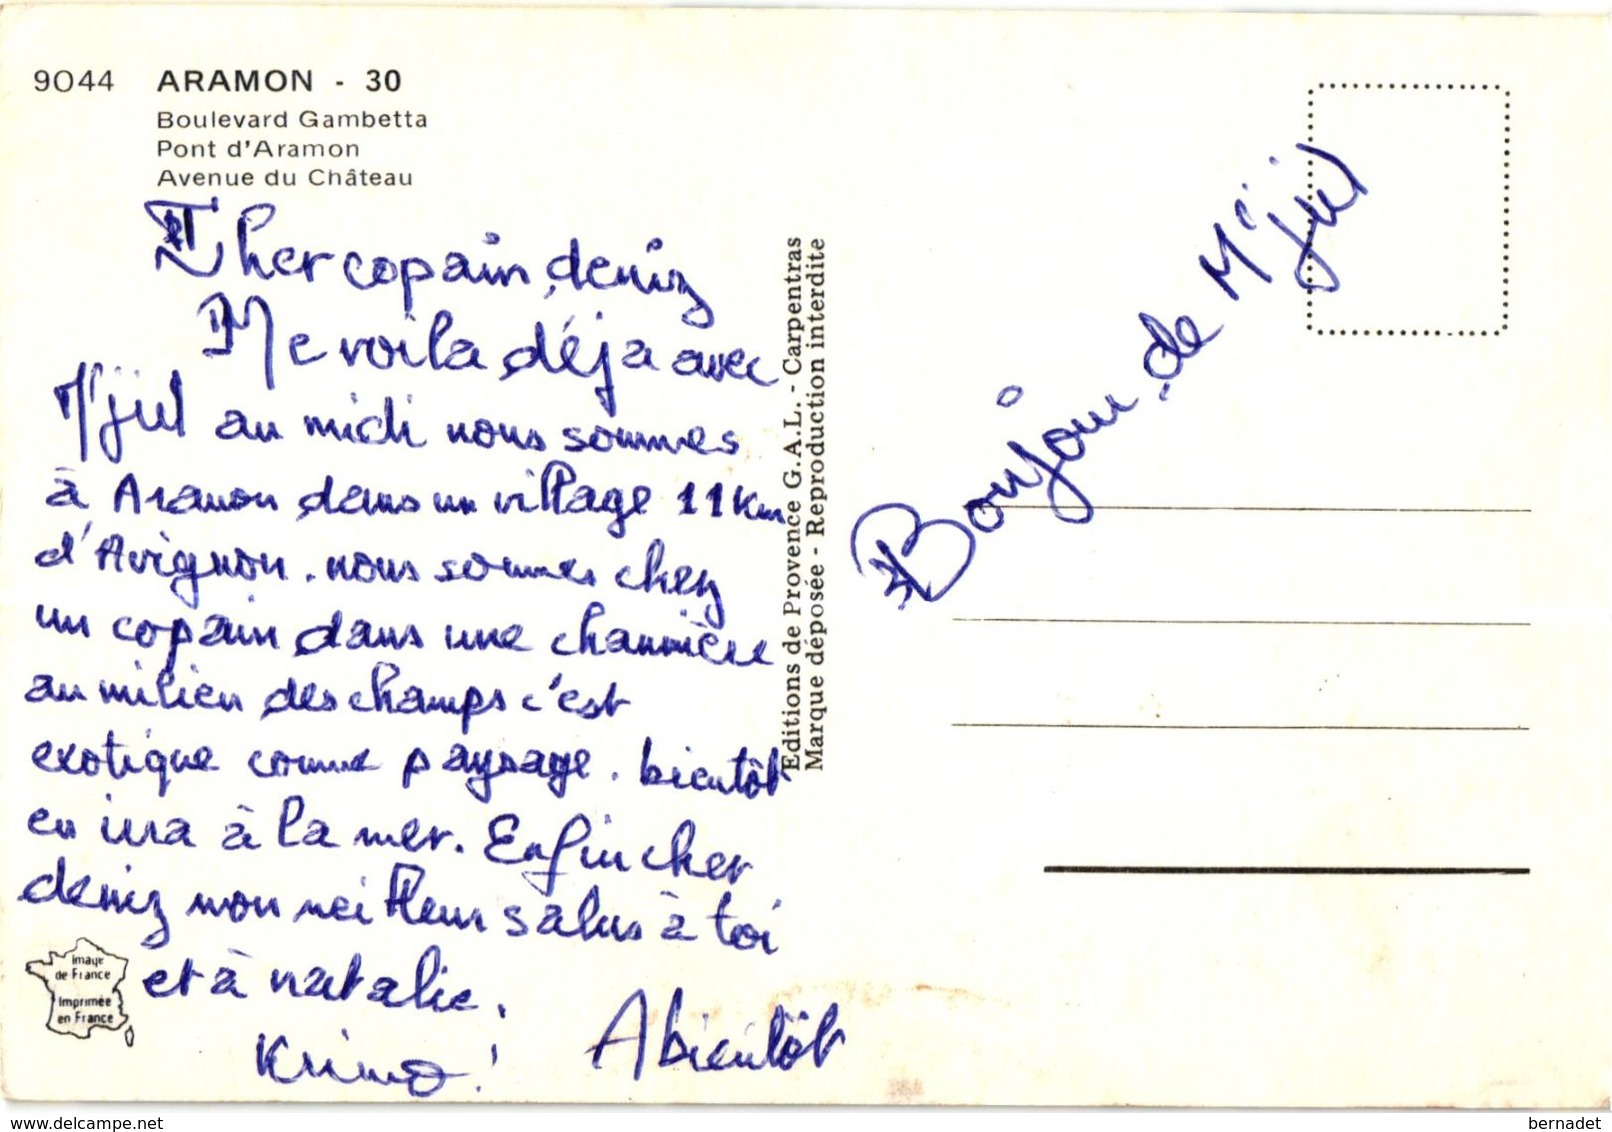 9044 ARAMON - 30
Boulevard Gambetta
Pont d'Aramon
Avenue du Château
Cher copain deniz
Me voila déja avec
M'jid au midi nous sommes
à Aramon dans un village 11 km
d'Avignon. nous sommes chez
un copain dans une chaumière
au milieu des champs c'est
exotique comme paysage. bientôt
en ira à la mer. Enfin cher
deniz mon meilleur salus à toi
et à natalie.
Krimo! Abientôt
Image
de France
Imprimée
en France
Editions de Provence G.A.L. - Carpentras
Marque déposée - Reproduction interdite
Bonjour de M'jid
www.delcampe.net
bernadet